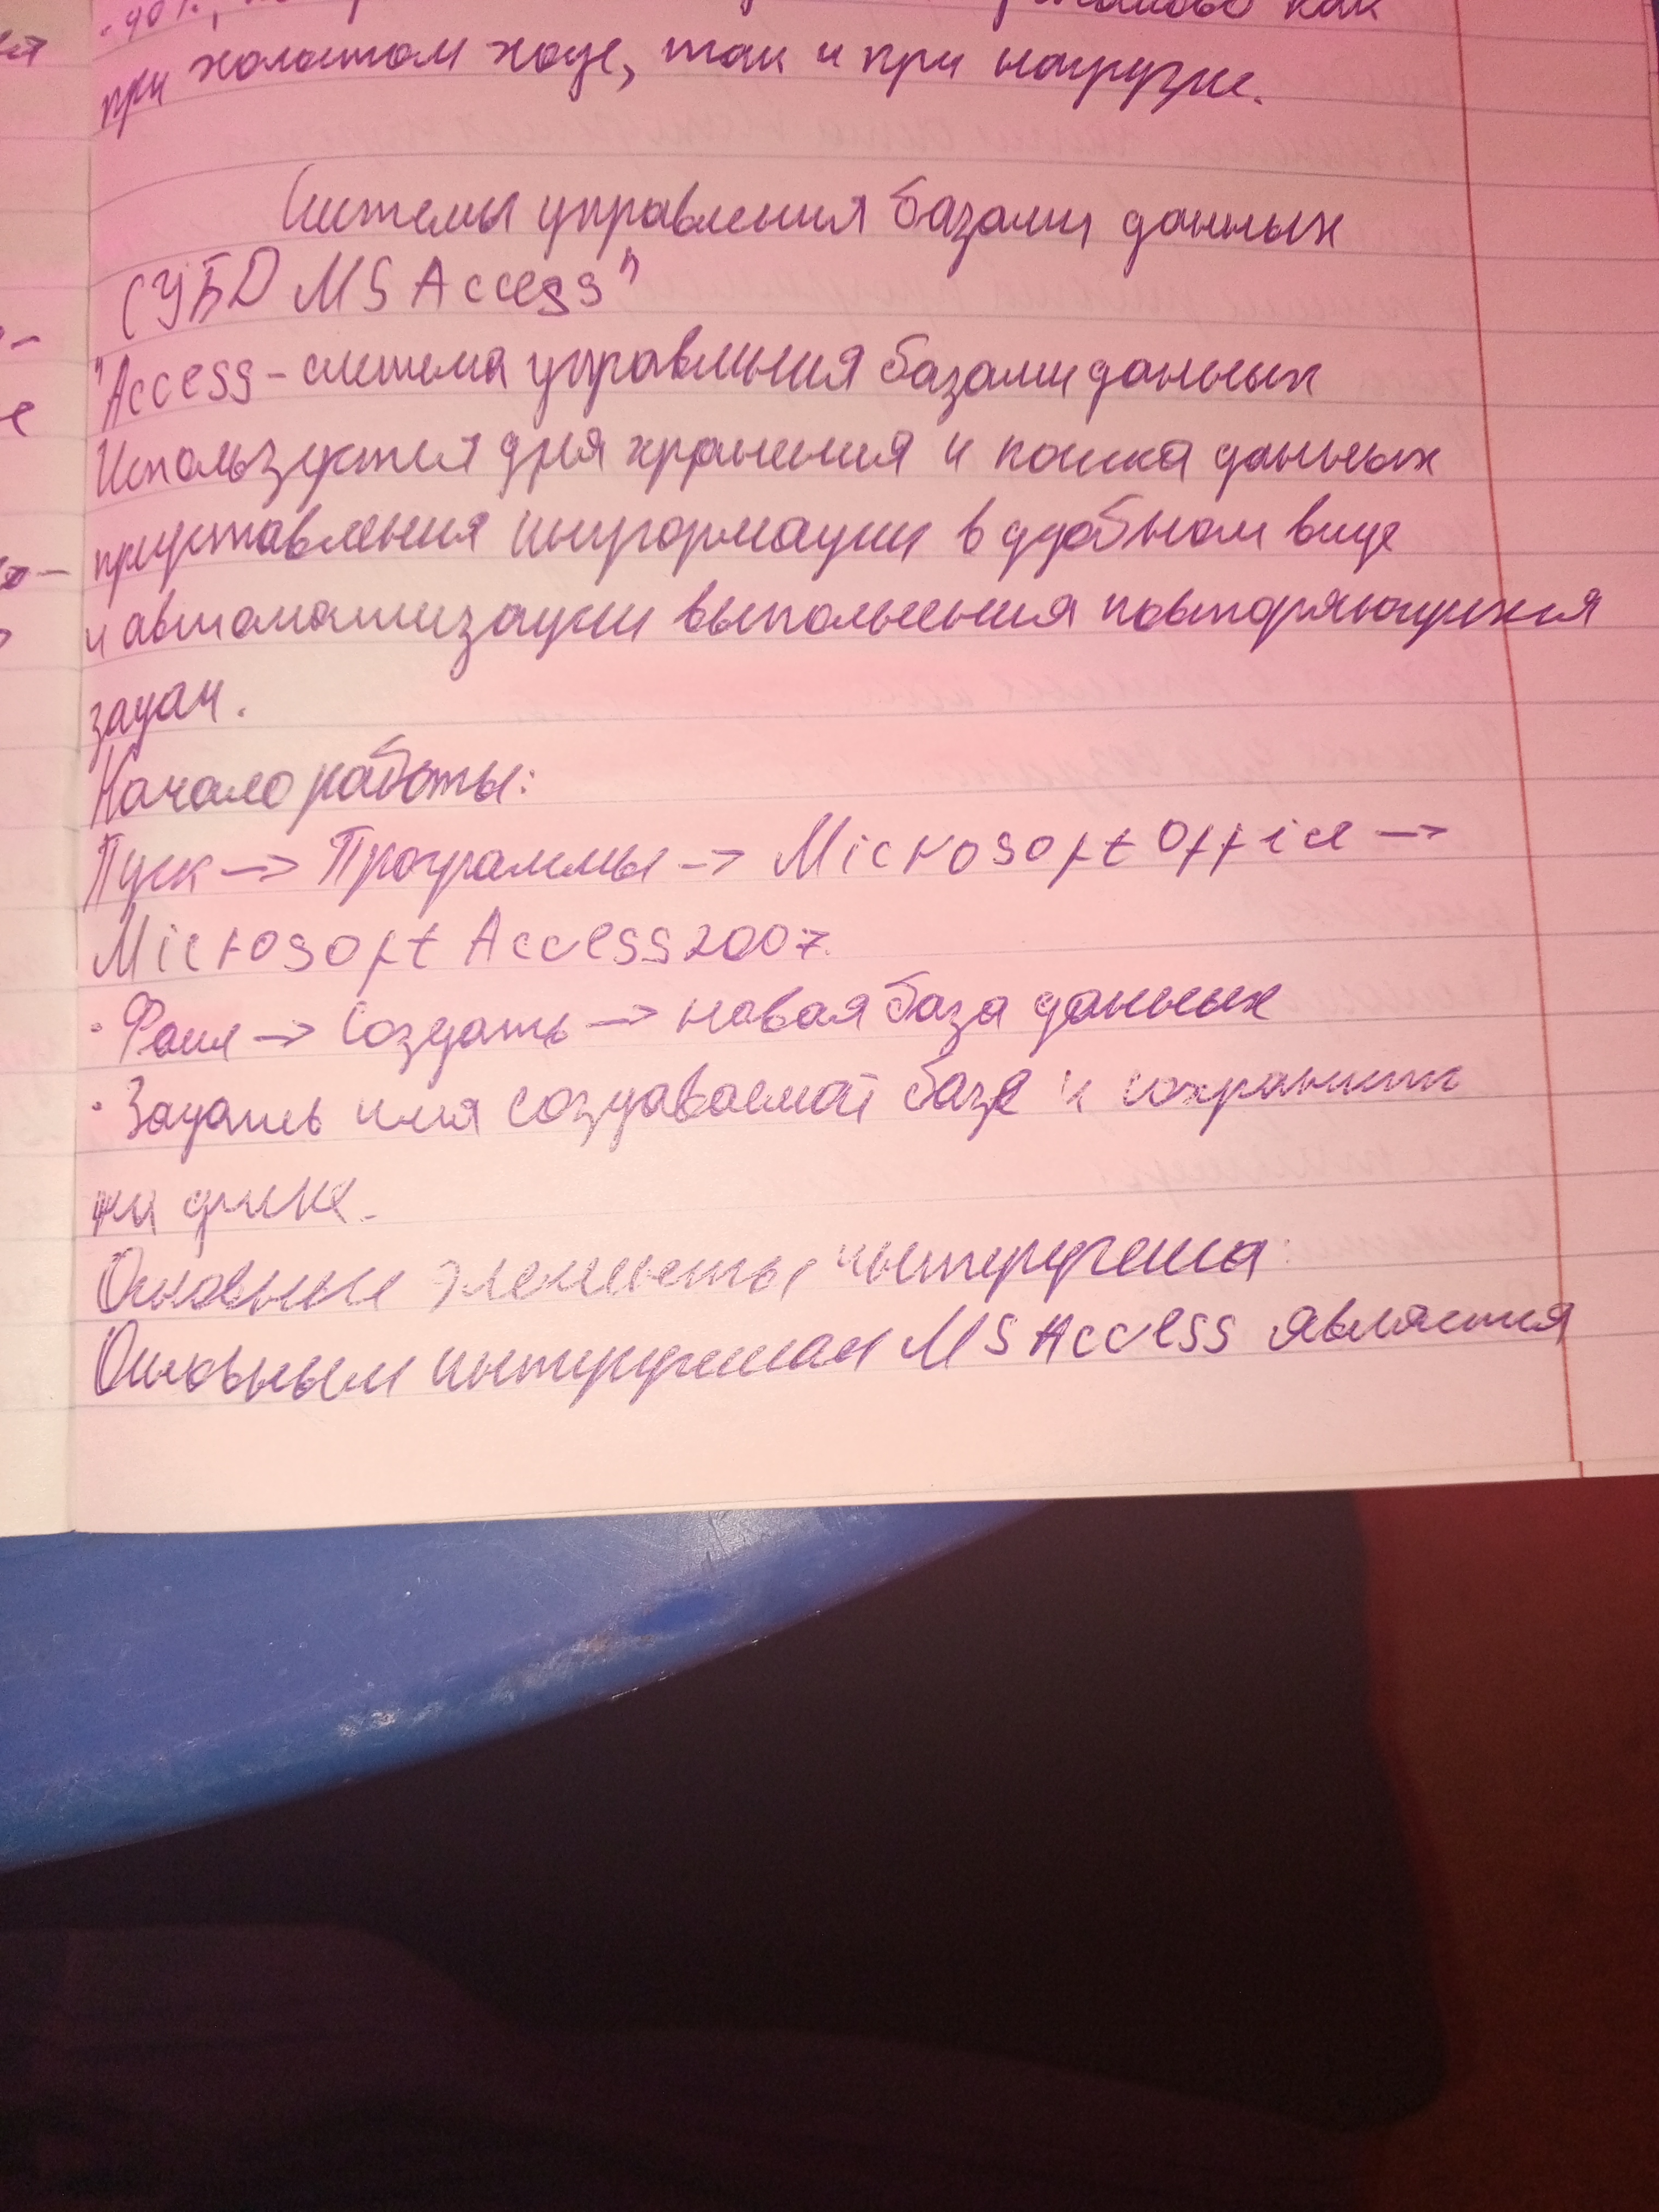 как
при холостом ходе, так и при нагрузке.
Системы управления базами данных
СУБД MS Access"
"Access – система управления базами данных
Используется для хранения и поиска данных
представления информации в удобном виде
и автоматизации выполнения повторяющихся
задач.
Начало работы:
Пуск → Программы → Microsoft Office →
Microsoft Access 2007.
· Файл → Создать → новая база данных
· Задать имя создаваемой базе и сохранить
на диске.
Основные элементы интерфейса:
Основным интерфейсом MS Access является